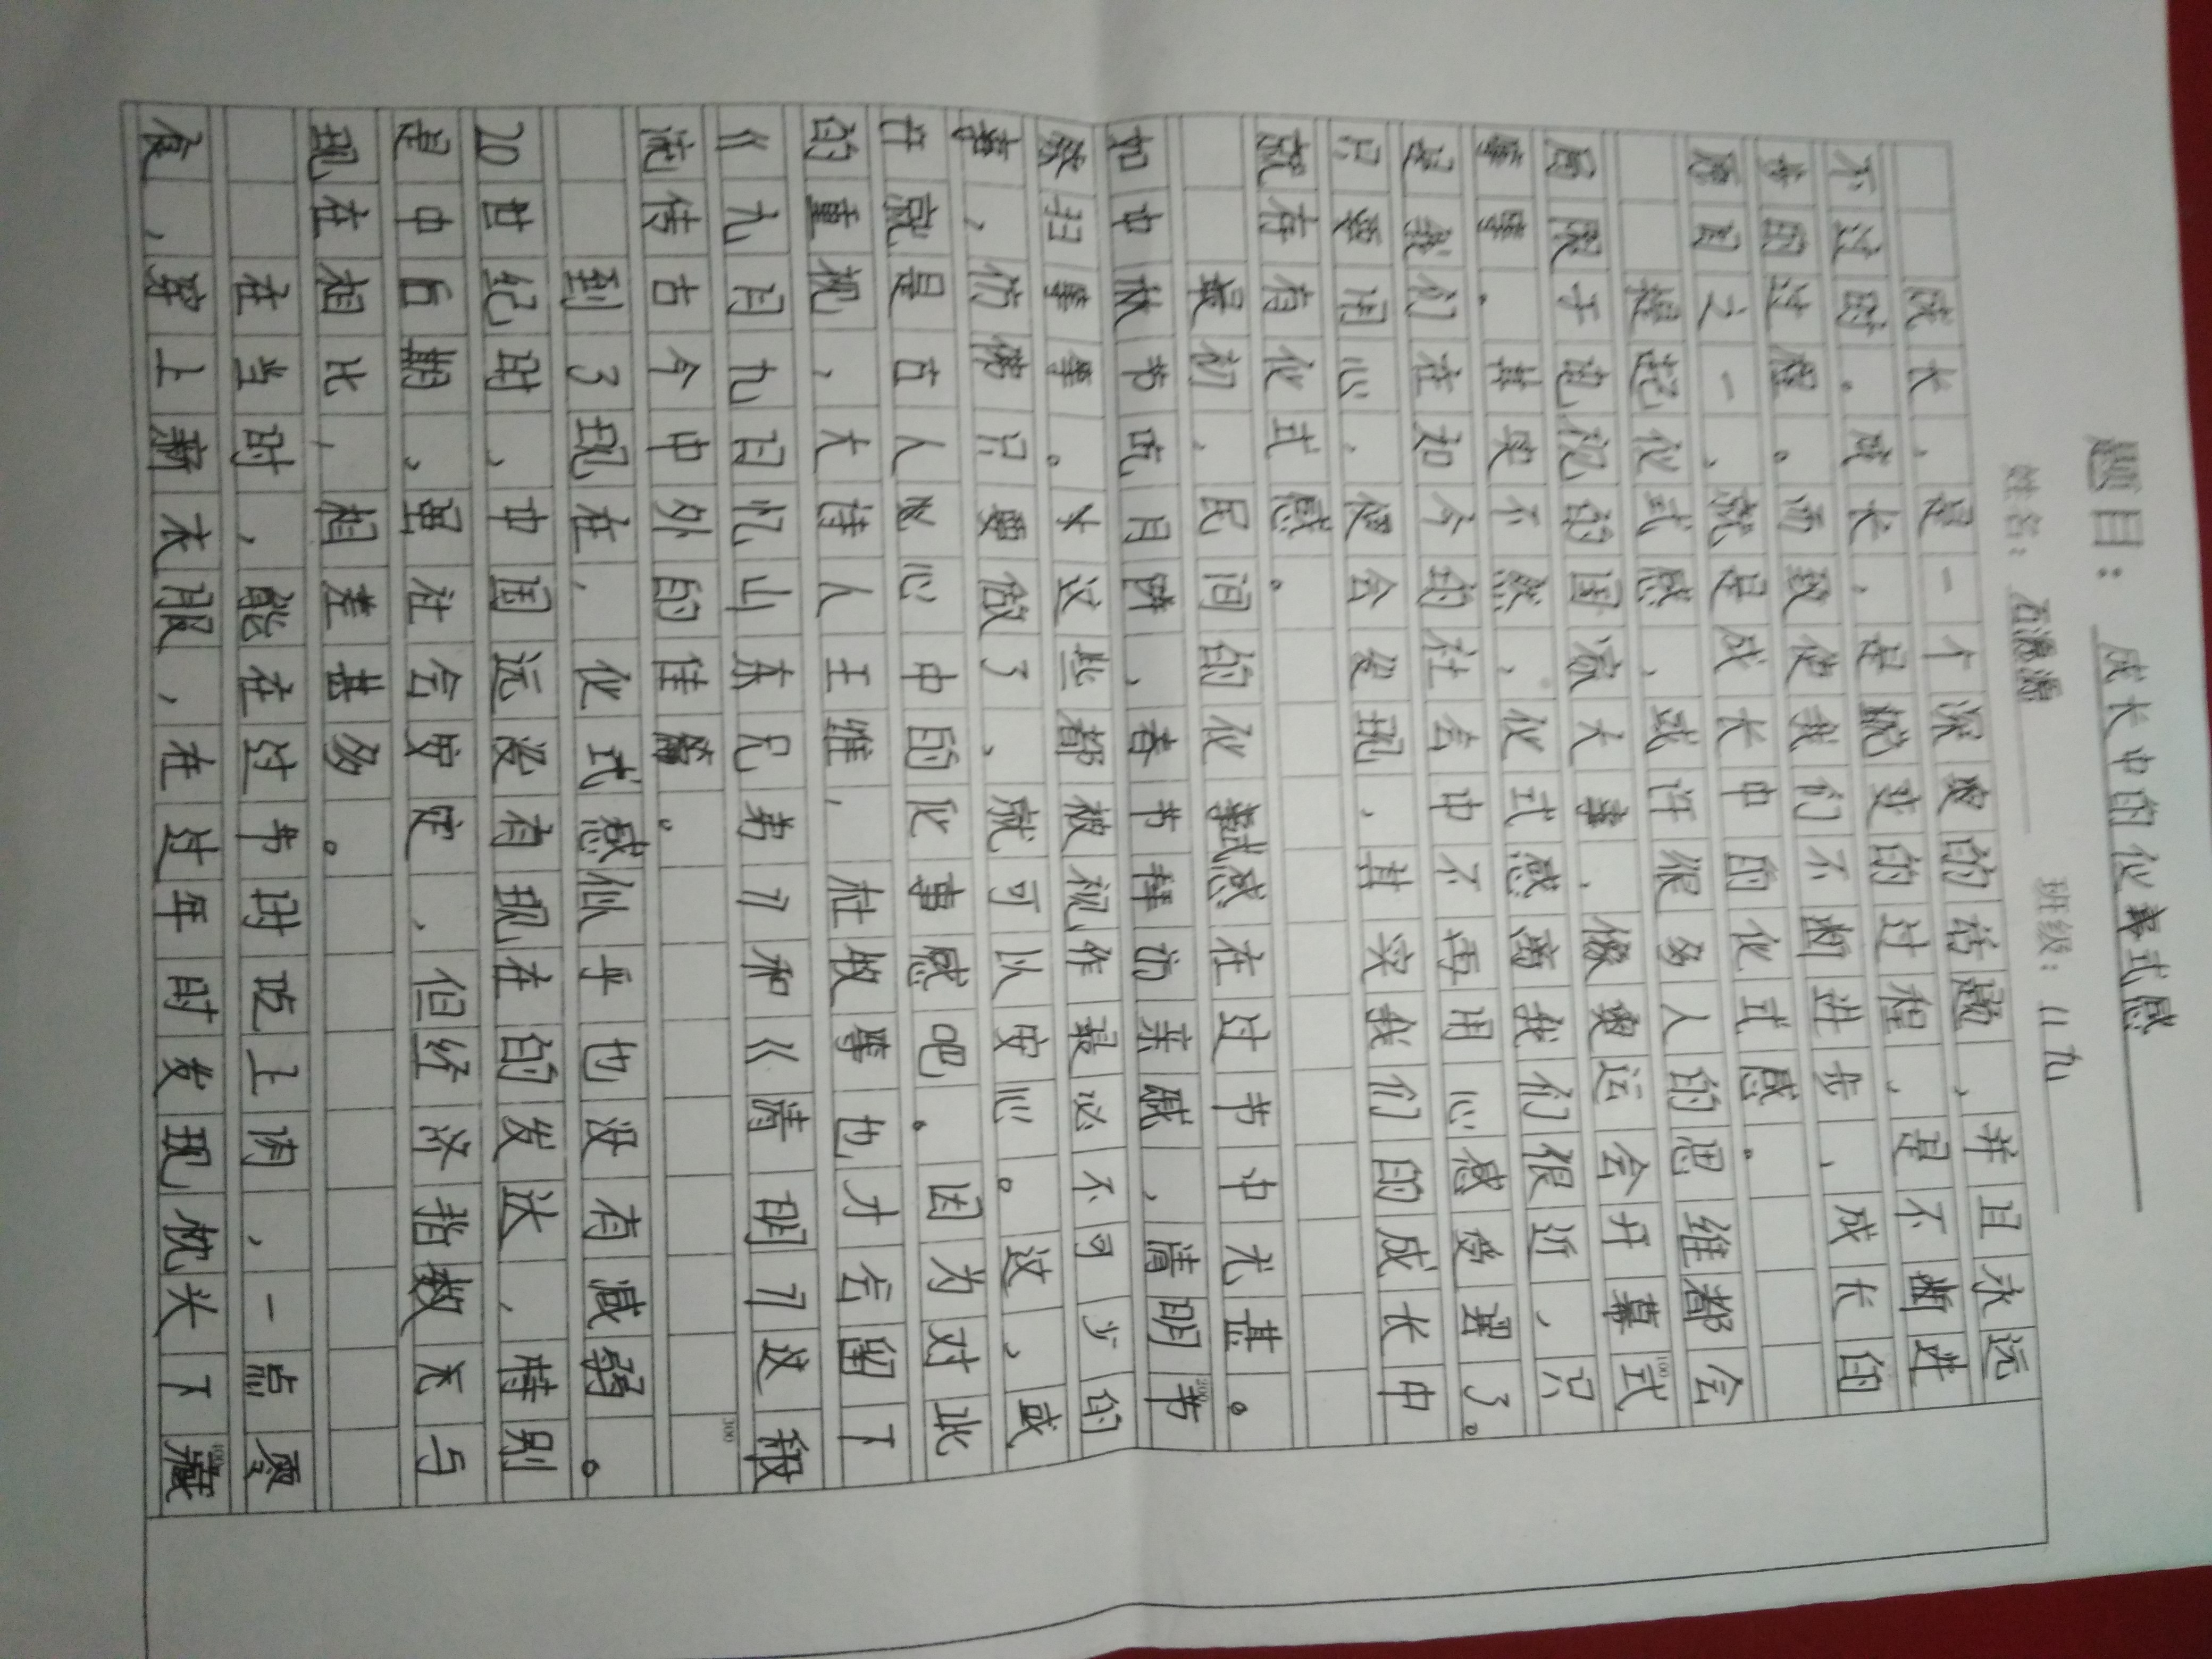 题目：成长中的仪式感
姓名：石濠源 班级：八九
成长，是一个深奥的话题，并且永远
不过时。成长，是蜕变的过程，是不断进
步的过程。而致使我们不断进步，成长的
原因之一，就是成长中的仪式感。
提起仪式感，或许很多人的思维都会
局限于电视的国家大事，像奥运会开幕式
等等。其实不然，仪式感离我们很近，只
是我们在如今的社会中不再用心感受罢了。
只要用心，便会发现，其实我们的成长中
就存有仪式感。
最初，民间的仪式感在过节中尤甚。
如中秋节吃月饼，春节拜访亲戚，清明节
祭扫等等。这些都被视作最必不可少的
事，仿佛只要做了，就可以安心。这，或
许就是古人心中的仪式感吧。因为对此
的重视，大诗人王维，杜牧等也才会留下
《九月九日忆山东兄弟》和《清明》这般
流传古今中外的佳篇。
到了现在，仪式感似乎也没有减弱。
20世纪时，中国远没有现在的发达，特别
是中后期，虽社会安定，但经济指数无与
现在相比，相差甚多。
在当时，能在过节时吃上肉，一点零
食，穿上新衣服，在过年时发现枕头下藏
100
200
300
400